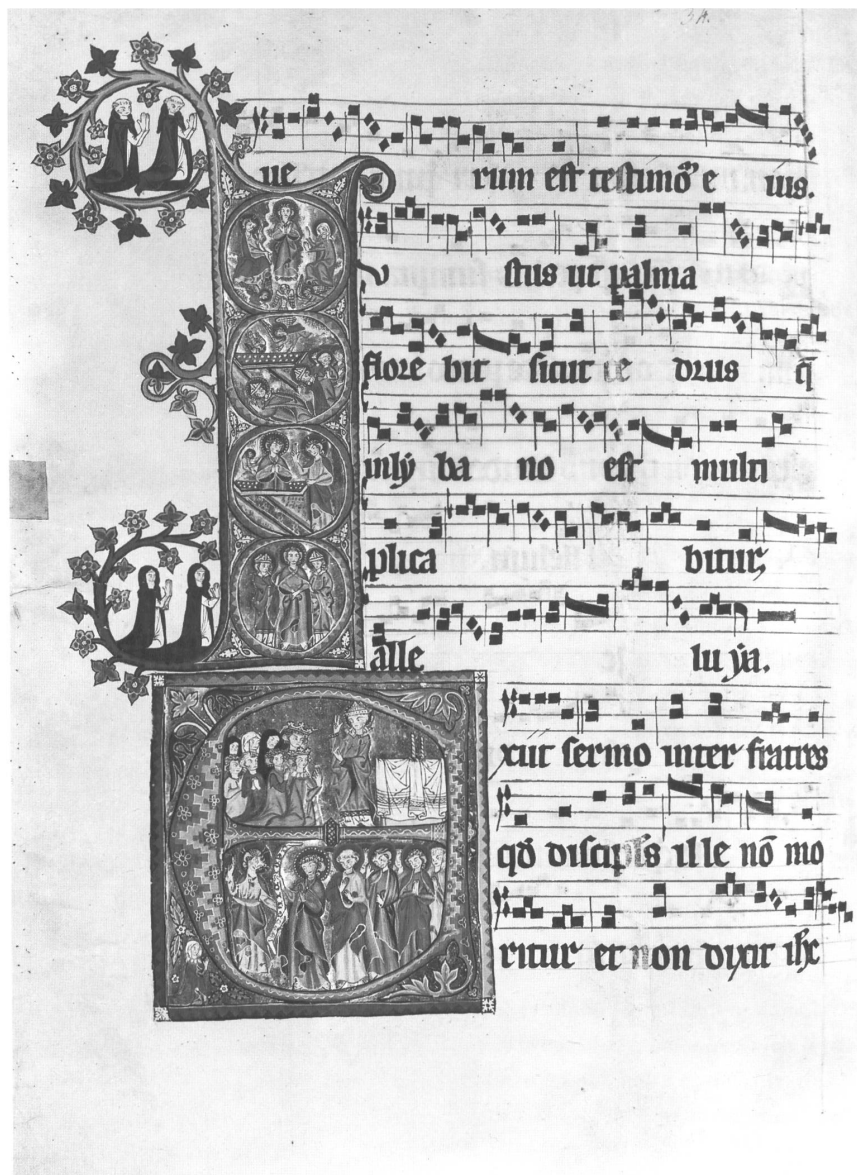 ue rum est testimō e ius.
stus ut palma
flore bit sicut ce drus q̄
inly ba no est multi
plica bitur,
alle lu ya.
xiit sermo inter fratres
qd̄ discipls ille nō mo
ritur et non dixit ihc